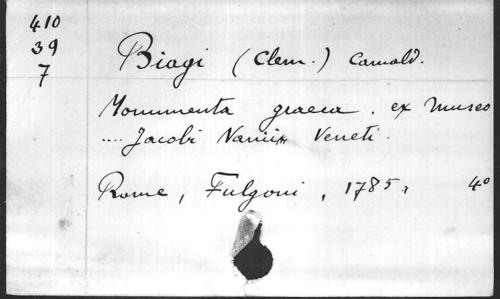 410
39
7
Biagi (Clem.) Camald.
Monumenta graeca. ex museo
.... Jacobi Nanii Veneti.
Rome, Fulgoni, 1785, 4°